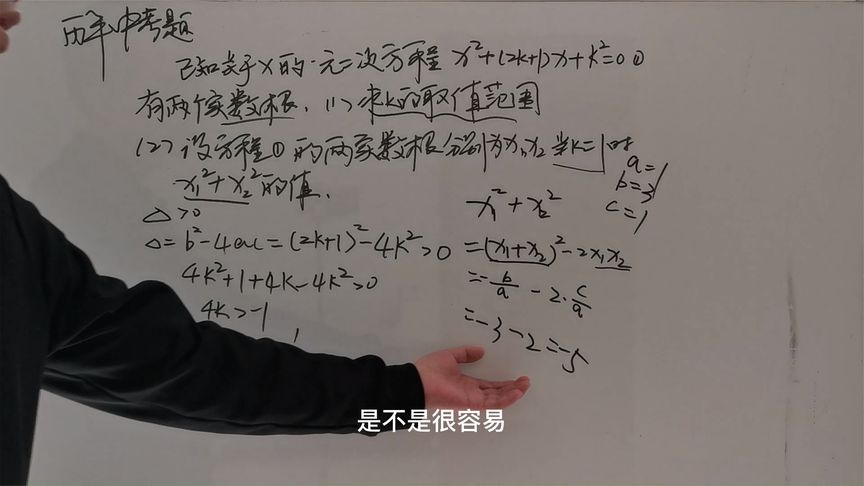 历年中考题
已知关于x的一元二次方程 x²+(2k+1)x+k²=0 ①
有两个实数根. (1) 求k的取值范围
(2) 设方程①的两实数根分别为x₁,x₂ 当k=1时
x₁²+x₂²的值.
△>0
△=b²-4ac=(2k+1)²-4k²>0
4k²+1+4k-4k²>0
4k>-1
a=1
b=3
c=1
x₁²+x₂²
=(x₁+x₂)²-2x₁x₂
=-b/a-2·c/a
=-3-2=-5
是不是很容易